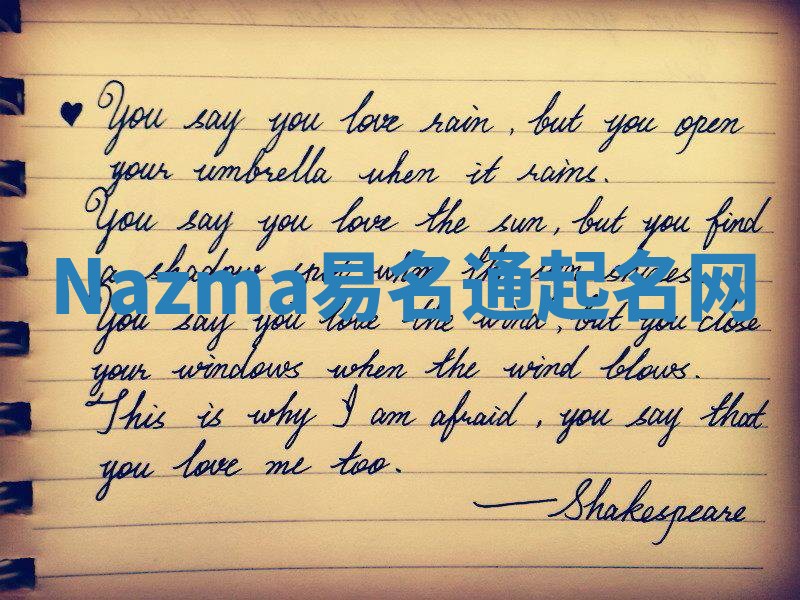 You say you love rain, but you open
your umbrella when it rains.
You say you love the sun, but you find
a shadow spot when the sun shines
Nazma易名通起名网
You say you love the wind, but you close
your windows when the wind blows.
This is why I am afraid, you say that
you love me too.
—Shakespeare